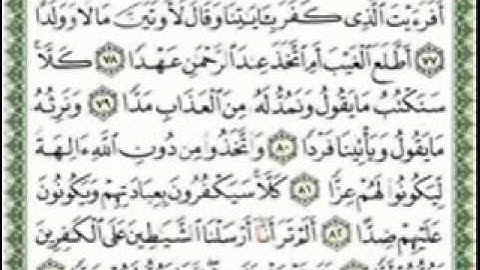 أَفَرَءَيْتَ ٱلَّذِى كَفَرَ بِـَٔايَـٰتِنَا وَقَالَ لَأُوتَيَنَّ مَالًا وَوَلَدًا
﴿٧٧﴾ أَطَّلَعَ ٱلْغَيْبَ أَمِ ٱتَّخَذَ عِندَ ٱلرَّحْمَـٰنِ عَهْدًا ﴿٧٨﴾ كَلَّا
سَنَكْتُبُ مَا يَقُولُ وَنَمُدُّ لَهُۥ مِنَ ٱلْعَذَابِ مَدًّا ﴿٧٩﴾ وَنَرِثُهُۥ
مَا يَقُولُ وَيَأْتِينَا فَرْدًا ﴿٨٠﴾ وَٱتَّخَذُوا۟ مِن دُونِ ٱللَّهِ ءَالِهَةً
لِّيَكُونُوا۟ لَهُمْ عِزًّا ﴿٨١﴾ كَلَّا سَيَكْفُرُونَ بِعِبَادَتِهِمْ وَيَكُونُونَ
عَلَيْهِمْ ضِدًّا ﴿٨٢﴾ أَلَمْ تَرَ أَنَّآ أَرْسَلْنَا ٱلشَّيَـٰطِينَ عَلَى ٱلْكَـٰفِرِينَ